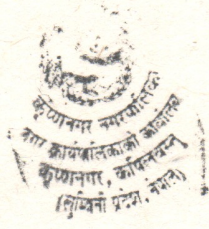 कृष्णनगर नगरपालिका
नगर कार्यपालिकाको कार्यालय
कृष्णनगर, कपिलवस्तु
(लुम्बिनी प्रदेश, नेपाल)